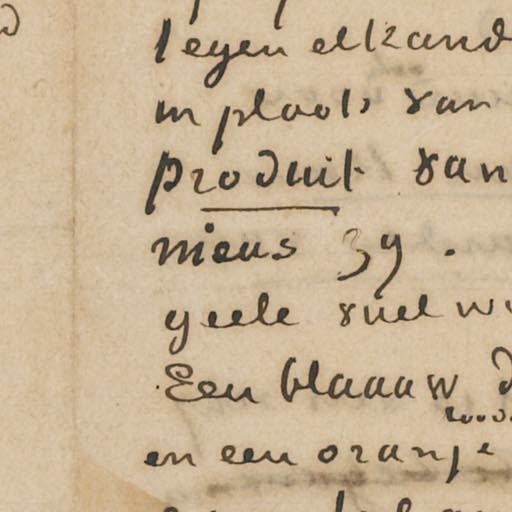 tegen elkand
in plaats van
produit van
nieus zy.
geele vuel
Een blaauw d
rood
en een oranje